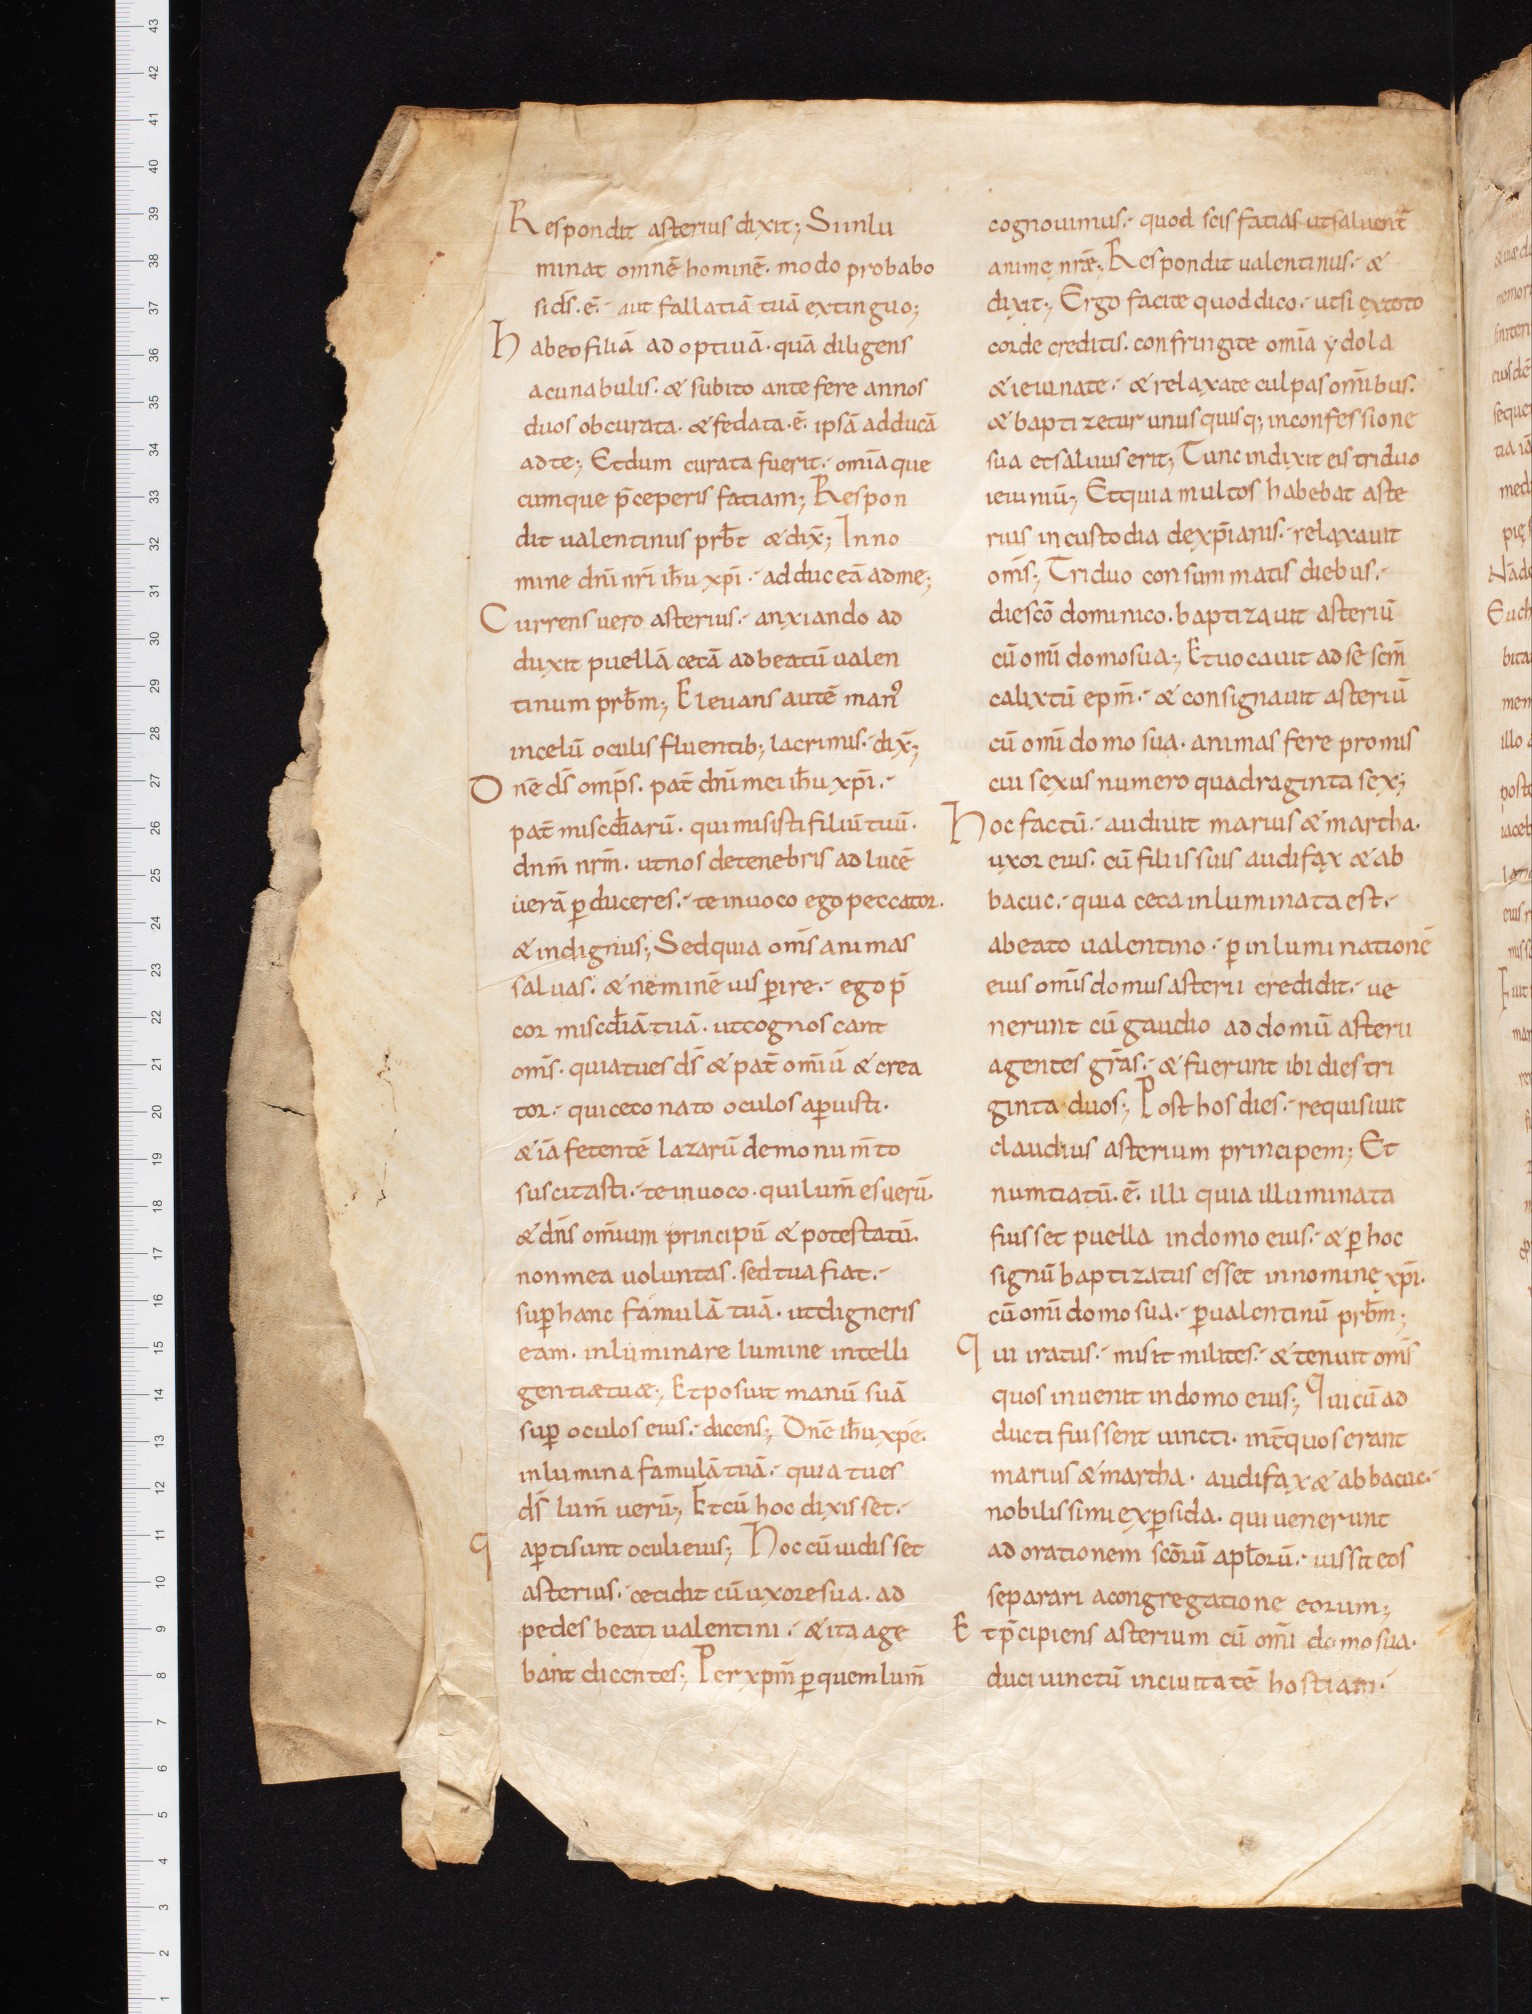 Respondit asterius dixit; Si inlu
minat omnē hominē. modo probabo
si ds̄. ē. aut fallatiā tuā extinguo;
Habeo filiā adoptiuā. quā diligens
a cunabulis. & subito ante fere annos
duos obcurata. & fedata. ē. ipsā adducā
ad te; Et dum curata fuerit. omīa que
cumque p̄ceperis fatiam; Respon
dit ualentinus prb̄t & dix̄; In no
mine dn̄i nr̄i ih̄u xp̄i. adduc eā ad me;
Currens uero asterius. anxiando ad
duxit puellā cecā ad beatū ualen
tinum prb̄m; Eleuans autē man᾽
in celū oculis fluentib; lacrimis. dix̄;
Dn̄e ds̄ omp̄s. pat̄ dn̄i mei ih̄u xp̄i.
pat̄ miscd̄iarū. qui misisti filiū tuū.
dnm̄ nrm̄. ut nos de tenebris ad lucē
uerā ꝑduceres. te inuoco ego peccator.
& indignus; Sed quia om̄s animas
saluas. & neminē uis ꝑire. ego p̄
cor miscd̄iā tuā. ut cognoscant
om̄s. quia tu es ds̄ & pat̄ om̄iū & crea
tor. qui ceco nato oculos aꝑuisti.
& iā fetentē lazarū de monum̄to
suscitasti. te inuoco. qui lum̄ es uerū.
& dn̄s om̄ium principū & potestatū.
non mea uoluntas. sed tua fiat.
suꝑ hanc famulā tuā. ut digneris
eam. inluminare lumine intelli
gentiæ tuæ; Et posuit manū suā
suꝑ oculos eius. dicens; Dn̄e ih̄u xp̄e.
inlumina famulā tuā. quia tu es
ds̄ lum̄ uerū; Et cū hoc dixisset.
aꝑti sunt oculi eius; Hoc cū uidisset
asterius. cecidit cū uxore sua. ad
pedes beati ualentini. & ita age
bant dicentes; Per xpm̄ ꝑ quem lum̄
cognouimus. quod scis fatias ut saluent̄
animę nrǣ; Respondit ualentinus. &
dixit; Ergo facite quod dico. ut si ex toto
corde creditis. confringite omīa ydola
& ieiunate. & relaxate culpas omībus.
& baptizetur unusquisq; in confessione
sua et saluus erit; Tunc indixit eis triduo
ieiuniū; Et quia multos habebat aste
rius in custodia de xp̄ianis. relaxauit
om̄s; Triduo consummatis diebus.
die scō dominico. baptizauit asteriū
cū omī domo sua; Et uocauit ad se scm̄
calixtū epm̄. & consignauit asteriū
cū omī domo sua. animas fere promis
cui sexus numero quadraginta sex;
Hoc factū. audiuit marius & martha.
uxor eius. cū filiis suis audifax & ab
bacuc. quia ceca inluminata est.
a beato ualentino. ꝑ inluminationē
eius om̄is domus asterii credidit. ue
nerunt cū gaudio ad domū asterii
agentes gr̄as. & fuerunt ibi dies tri
ginta duos; Post hos dies. requisiuit
claudius asterium principem; Et
numtiatū. ē. illi quia illuminata
fuisset puella in domo eius. & ꝑ hoc
signū baptizatus esset in nomine xp̄i.
cū omī domo sua. ꝑ ualentinū prb̄m;
Qui iratus. misit milites. & tenuit om̄s
quos inuenit in domo eius; Qui cū ad
ducti fuissent uincti. int̄ quos erant
marius & martha. audifax & abbacuc.
nobilissimi ex ꝑsida. qui uenerunt
ad orationem scōrū apl̄orū. iussit eos
separari a congregatione eorum;
Et p̄cipiens asterium cū omī domo sua.
duci uinctū in ciuitatē hostiam.